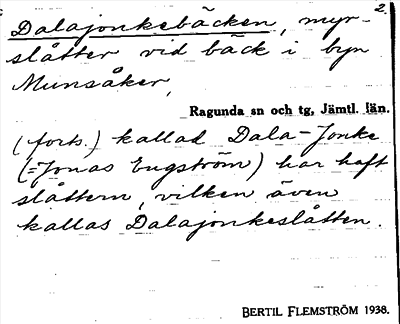 2.
Dalajonkebäcken, myr-
slåtter vid bäck i byn
Munsåker,
Ragunda sn och tg, Jämtl. län.
(forts.) kallad Dala-Jonke
(=Jonas Engström) har haft
slåttern, vilken även
kallas Dalajonkeslåtten.
BERTIL FLEMSTRÖM 1938.